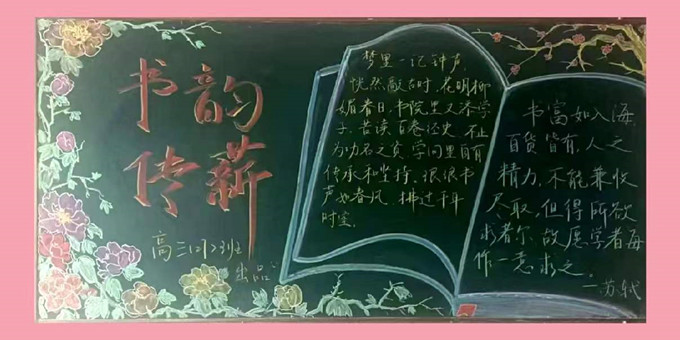 书韵
传薪
高三(2)班
出品
梦里一记钟声,
恍然敲在时,花明柳
媚春日,书院里又添学
子。苦读百卷经史,不止
为功名之资,学问里自有
传承和坚持,琅琅书
声如春风,拂过千年
时空。
书富如入海,
百货皆有,人之
精力,不能兼收
尽取,但得所欲
求者尔,故愿学者每
作一意求之。
—苏轼